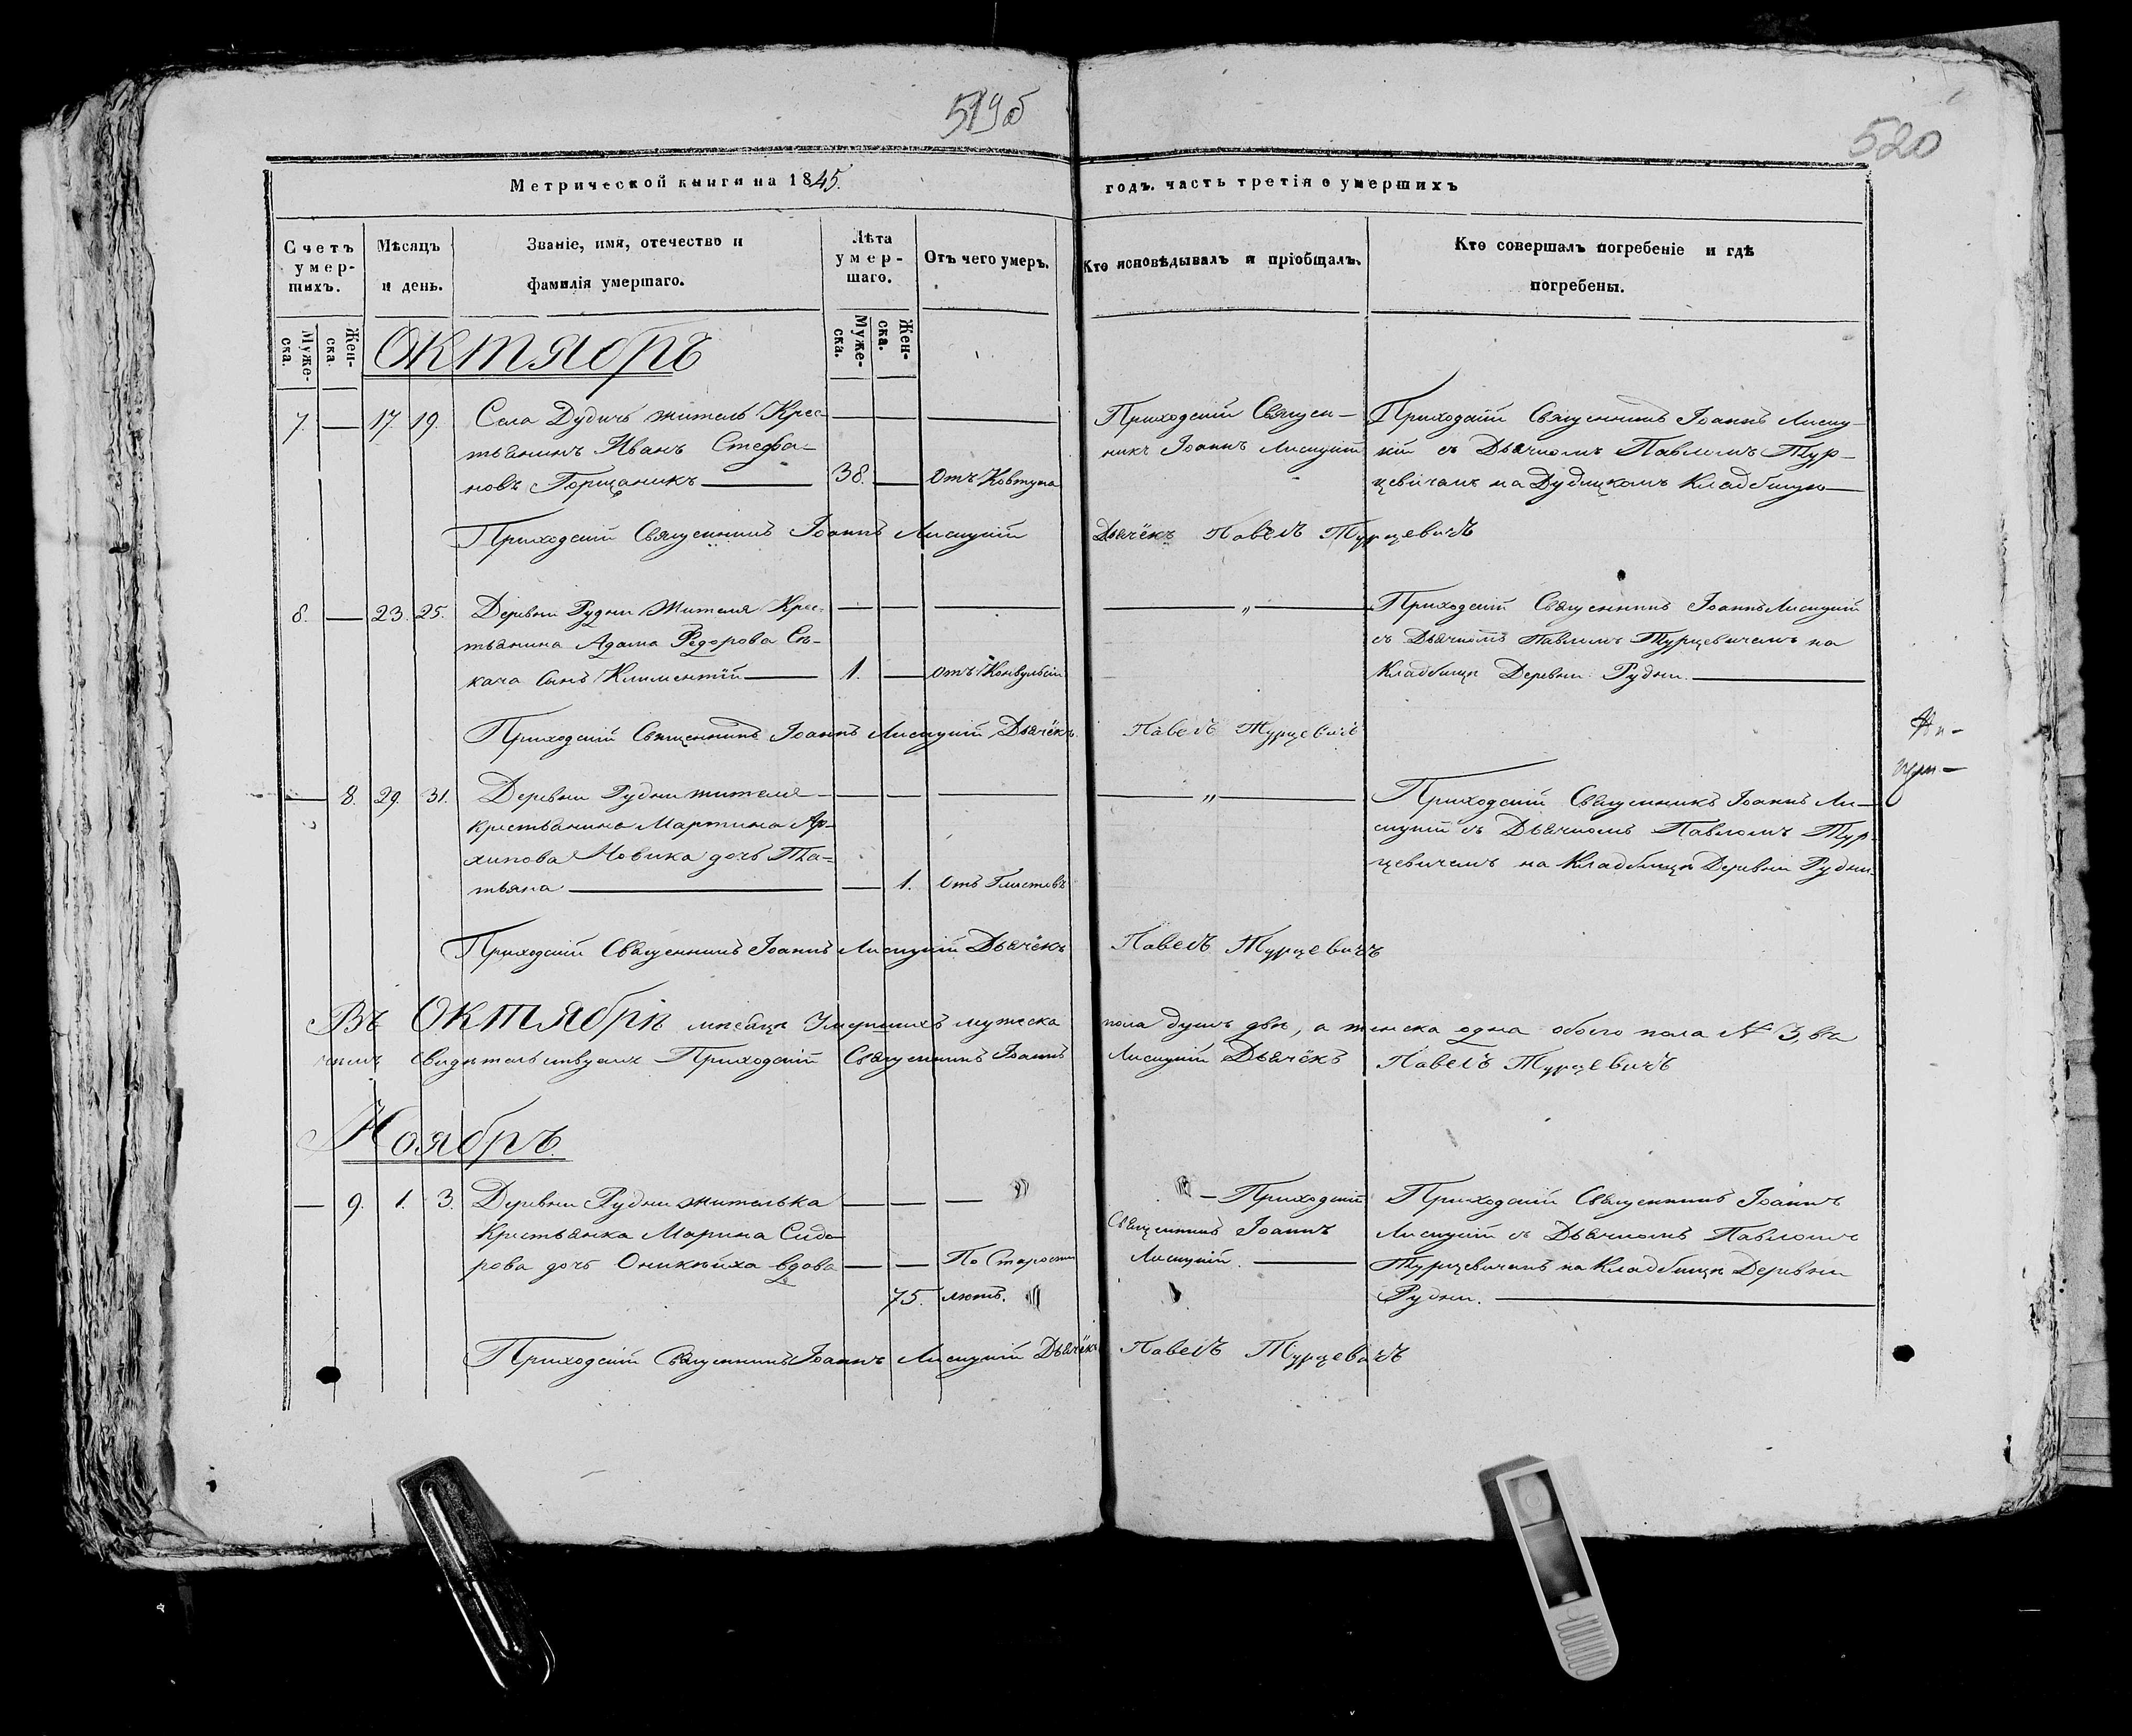 519об
520
Метрической книги на 1845.
годъ. часть третія о умершихъ
Счетъ умер-шихъ.
Мѣсяцъ и день.
Званіе, имя, отечество и
фамилія умершаго.
Лѣта умер-шаго.
Отъ чего умеръ.
Кто исповѣдывалъ и пріобщалъ.
Кто совершалъ погребеніе и гдѣ
погребены.
Муже-ска.
Жен-ска.
Муже-ска.
Жен-ска.
Октябрь
7. — 17. 19. Села Дудичъ житель Крес-
тьянинъ Иванъ Стефа-
новъ Горщаникъ — 38. — Отъ Ковтуна
Приходскій Священ-
никъ Іоаннъ Лисицкій
Приходскій Священникъ Іоаннъ Лисиц-
кій съ Дьячкомъ Павломъ Тур-
цевичамъ на Дудицкомъ Кладбищю —
Приходскій Священникъ Іоаннъ Лисицкій Дьячёкъ Павелъ Турцевичъ
8. — 23. 25. Деревни Рудни Жителя Крес-
тьянина Адама Федорова Сѣ-
кача Сынъ Климентій — 1. — отъ Конвульсіи
— „ —
Приходскій Священникъ Іоаннъ Лисицкій
съ Дьячкомъ Павломъ Турцевичемъ на
Кладбищѣ Деревни Рудни. —
Приходскій Священникъ Іоаннъ Лисицкій Дьячёкъ Павелъ Турцевичъ
— 8. 29. 31. Деревни Рудни жителя —
крестьянина Мартина Ар-
хипова Новика дочь Та-
тьяна — — 1. Отъ Глистовъ
— „ —
Приходскій Священникъ Іоаннъ Ли-
сицкій съ Дьячкомъ Павломъ Тур-
цевичемъ на Кладбищѣ Деревни Рудни
Приходскій Священникъ Іоаннъ Лисицкій Дьячёкъ Павелъ Турцевичъ
Въ Октябрѣ мѣсяцѣ Умершихъ мужеска пола душъ двѣ, а женска одна обоего пола № 3, въ
чемъ свидѣтельствуемъ Приходскій Священникъ Іоаннъ Лисицкій Дьячёкъ Павелъ Турцевичъ
Ноябрь.
— 9. 1. 3. Деревни Рудни жителька
Крестьянка Марина Сидо-
рова дочь Оникѣиха вдова — — По Старости
75. лютъ.
— Приходскій
Священникъ Іоаннъ
Лисицкій. —
Приходскій Священникъ Іоаннъ
Лисицкій съ Дьячкомъ Павломъ
Турцевичемъ на Кладбищѣ Деревни
Рудни. —
Приходскій Священникъ Іоаннъ Лисицкій Дьячёкъ Павелъ Турцевичъ